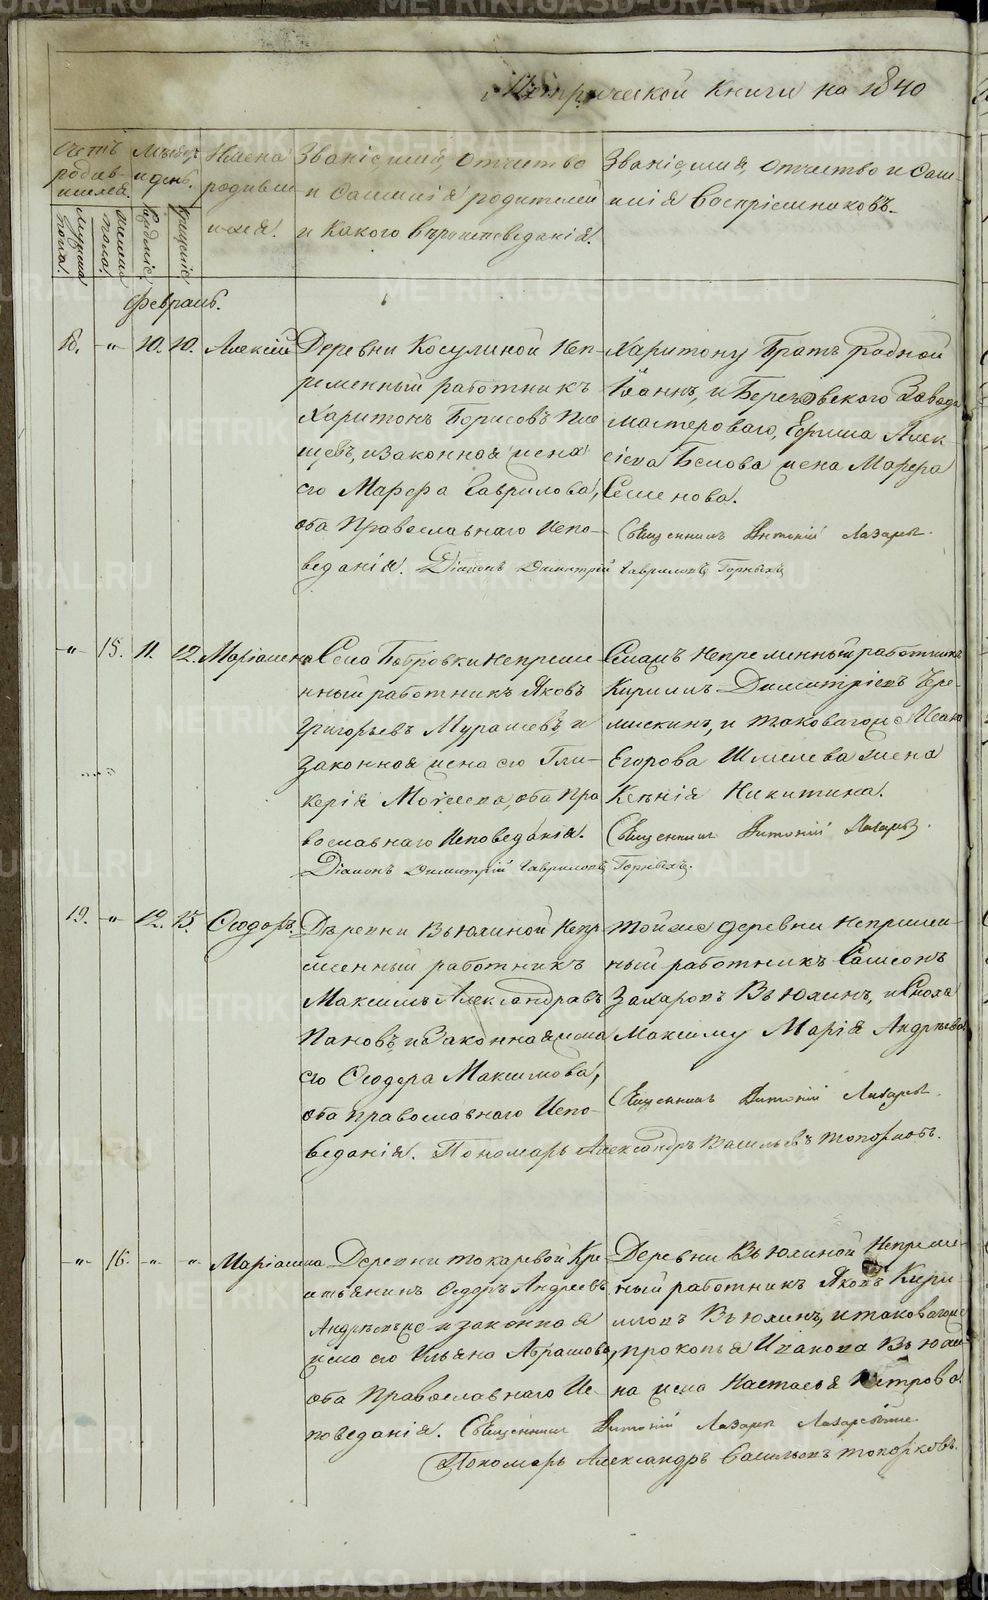 Метрической Книги на 1840
Счетъ родившихся.
Мужеска пола.
Женска пола.
Мѣсяцъ и день.
Рожденіе.
Крещеніе.
Имена родившихся.
Званіе, имя, отчество
и фамилія родителей
и какого вѣроисповеданія.
Званіе, имя, отчество и фамилія
воспріемниковъ.
Февраль.
18. -"- 10. 10. Алексій
Деревни Косулиной Неп-
ременный работникъ
Харитонъ Борисовъ
и Законная жена
его Марфа Гаврилова,
оба Православнаго Испо-
веданія. Діаконъ Димитрій Гавриловъ Горныхъ
Харитону Братъ родной
Іоаннъ, и Березовскаго Завода
мастероваго, Ефима Алек-
сіева Белова жена Марфа
Семенова.
Священникъ Антоній Лазаревъ.
-"- 15. 11. 12. Маріамна
Села Бобровки Непреме-
нный работникъ Яковъ
Григорьевъ Мурашевъ, и
Законная жена его Гли-
керія Моісеева, оба Пра-
вославнаго Исповеданія.
Діаконъ Димитрій Гавриловъ Горныхъ.
Непременный работникъ
Кириллъ Димитріевъ Чере-
мискинъ, и таковагоже Ивана
Егорова Шмелева жена
Ксенія Никитина.
Священникъ Антоній Лазаревъ.
19. -"- 12. 15. Ѳеодоръ.
Деревни Вьюхиной Непре-
менный работникъ
Максимъ Александровъ
Пановъ, и Законная жена
его Ѳеодора Максимова,
оба православнаго Испо-
веданія. Пономарь Александръ Васильевъ Топорковъ.
Тойже деревни Непремен-
ный работникъ Самсонъ
Захаровъ Вьюхинъ, и Сноха
Максиму Марія Андреева
Священникъ Антоній Лазаревъ.
-"- 16. -"- -"- Маріамна
Деревни токаревой Кре-
стьянинъ Ѳедоръ Андреевъ
и законная
жена его Ульяна Абрамова,
оба Православнаго Ис-
поведанія. Священникъ Антоній Лазаревъ
Пономарь Александръ Васильевъ топорковъ.
Деревни Вьюхиной Непреме-
ный работникъ Яковъ Кири-
лловъ Вьюхинъ, и таковагоже
прокопья Иванова Вьюхи-
на жена Настасья Петрова.
METRIKI.GASO-URAL.RU